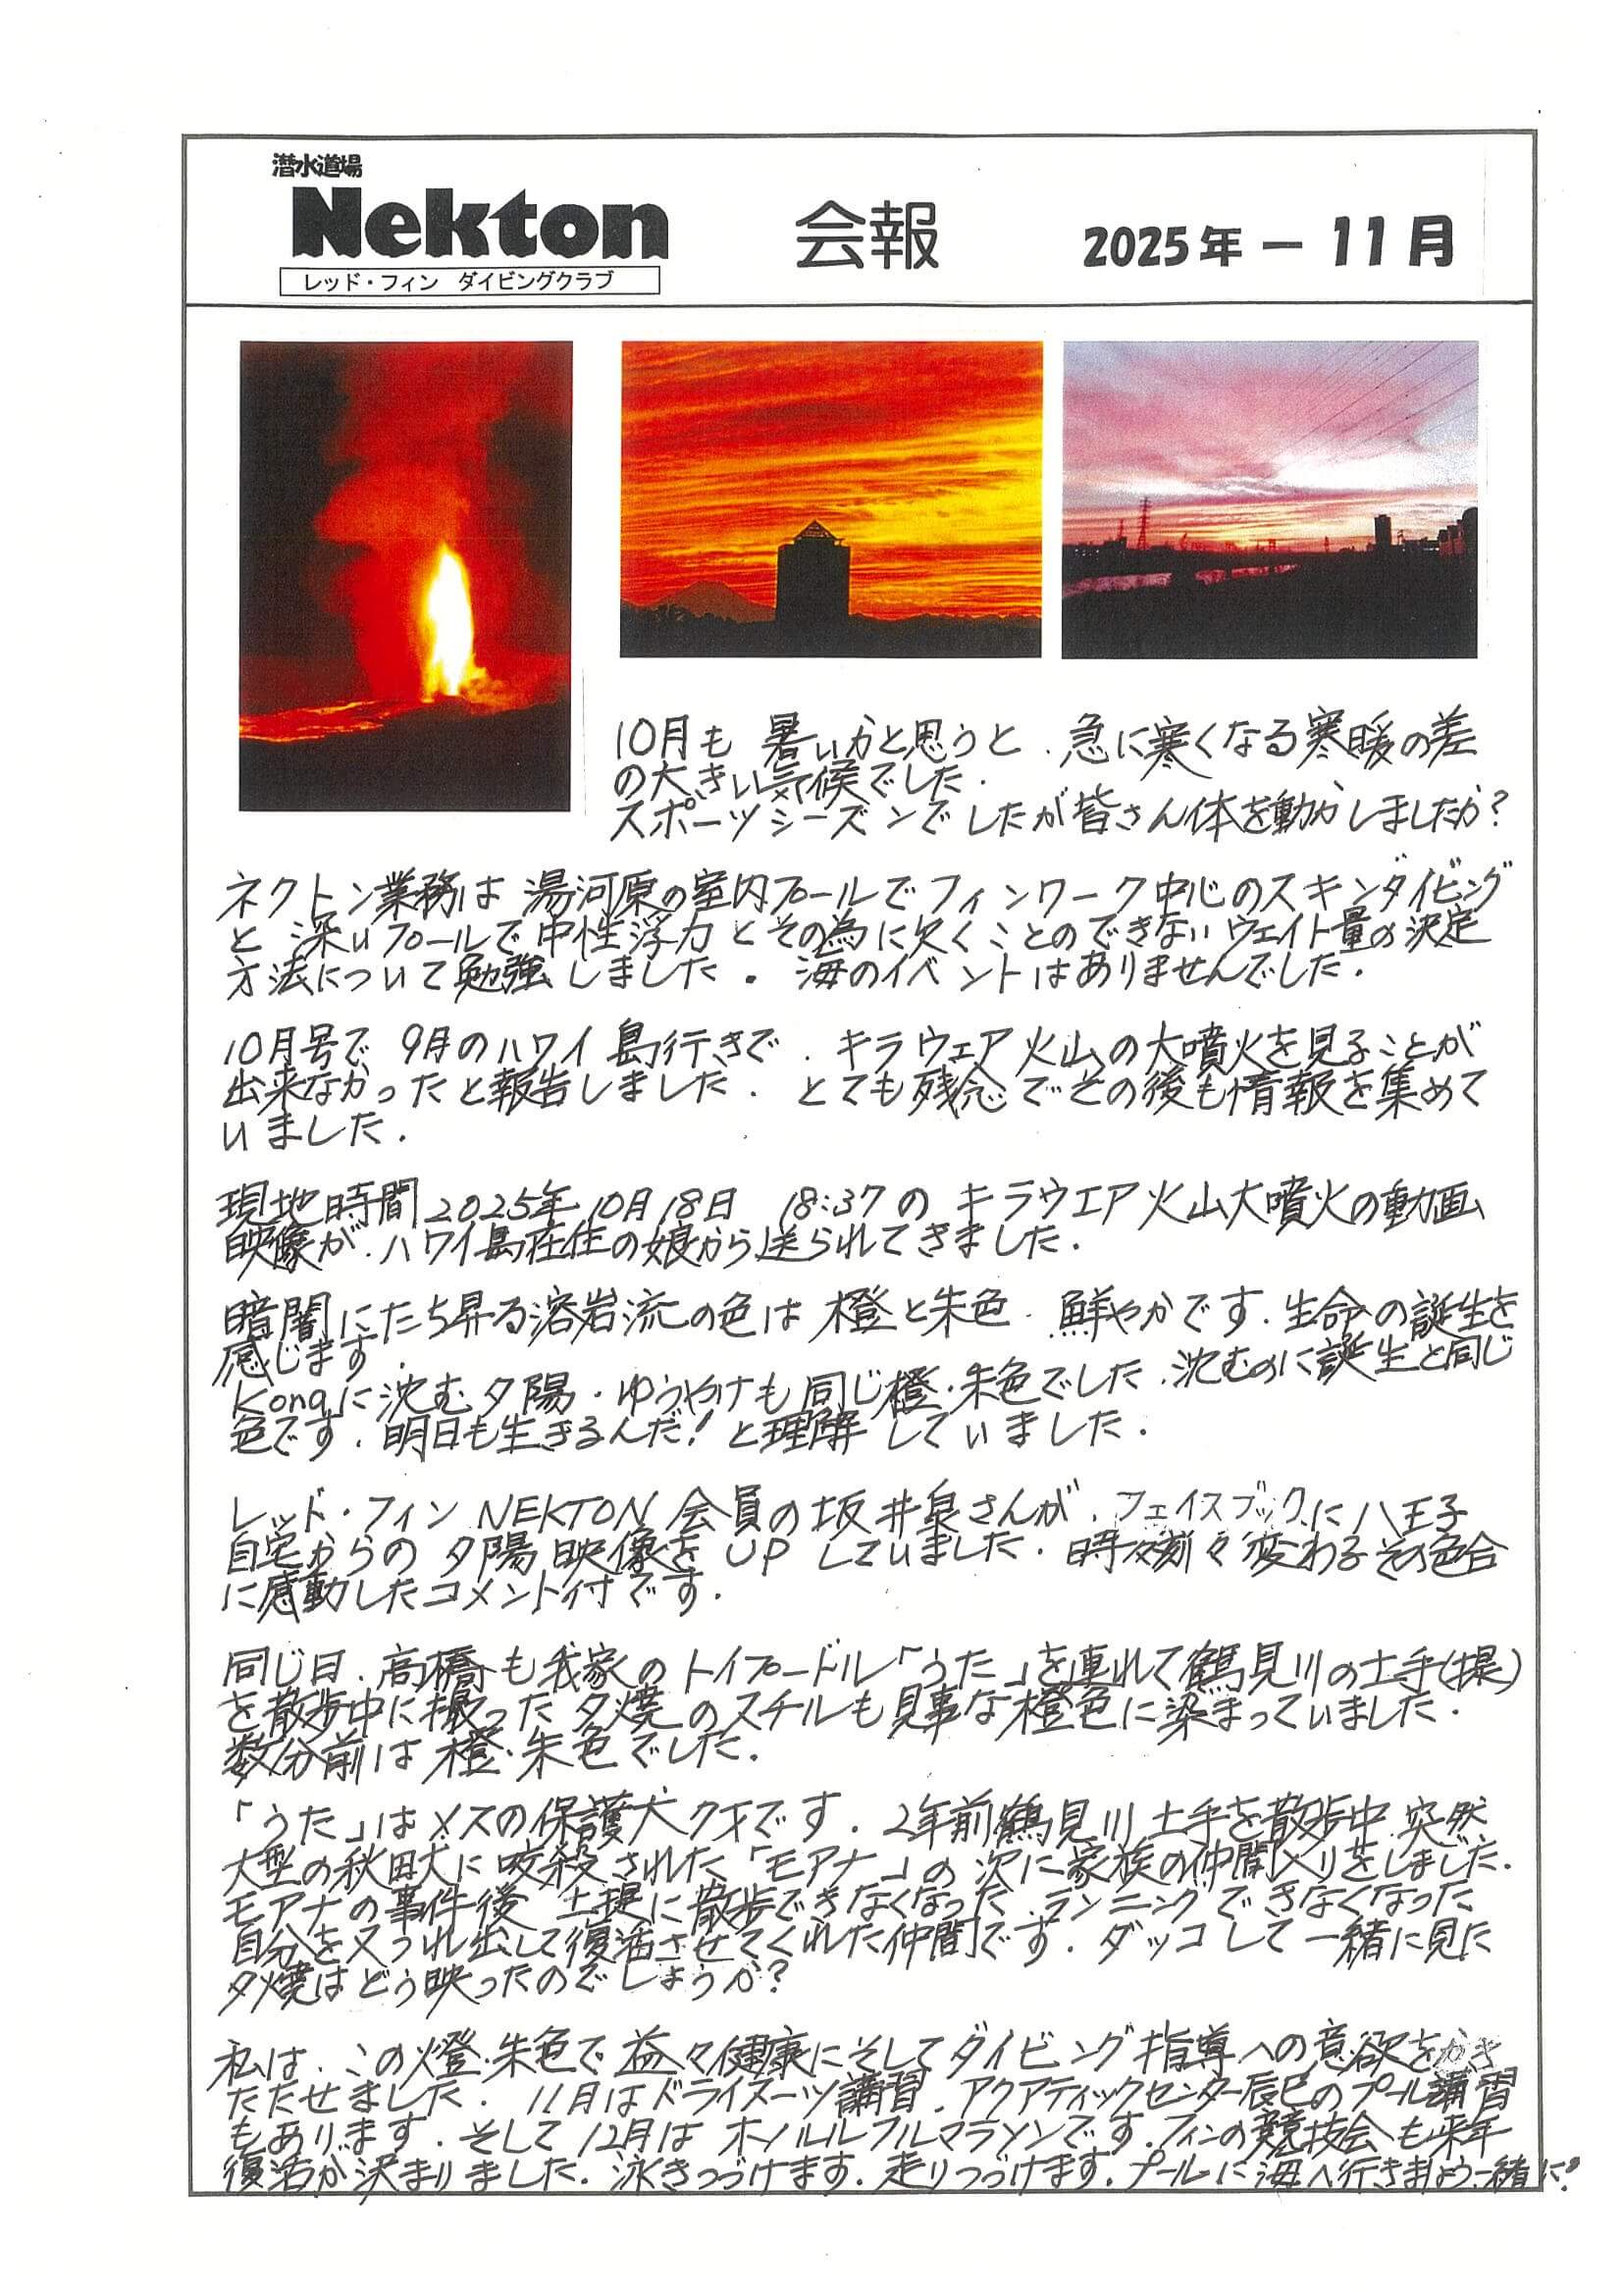 潜水道場
Nekton
レッド・フィン ダイビングクラブ
会報
2025年 ー 11月
10月も 暑いかと思うと、急に寒くなる寒暖の差
の大きい気候でした。
スポーツシーズンでしたが皆さん体を動かしましたか?
ネクトン業務は 湯河原の室内プールでフィンワーク中心のスキンダイビング
と 深いプールで中性浮力 とその為に欠くことのできない ウェイト量の決定
方法について勉強 しました。 海のイベントはありませんでした。
10月号で 9月のハワイ島行きで、キラウェア火山の大噴火を見ることが
出来なかったと報告しました。とても残念でその後も情報を集めて
いました。
現地時間 2025年 10月18日 18:37の キラウエア火山大噴火の動画
映像が、ハワイ島在住の娘から送られてきました。
暗闇にたち昇る溶岩流の色は 橙と朱色、鮮やかです。生命の誕生を
感じます。
Konaに沈む夕陽・ゆうやけも同じ橙・朱色でした。沈むのに誕生と同じ
色です。明日も生きるんだ!と理解していました。
レッド・フィン NEKTON 会員の坂井泉さんが、フェイスブックに八王子
自宅からの 夕陽映像を UP していました。時々刻々変わるその色合
に感動したコメント付です。
同じ日、高橋も我家のトイプードル「うた」を連れて鶴見川の土手(堤)
を散歩中に撮った夕焼のスチルも見事な橙色に染まっていました。
数分前は 橙・朱色でした。
「うた」はメスの保護犬 クオです。2年前鶴見川 土手を散歩中 突然
大型の秋田犬に咬殺された「モアナ」の次に家族の仲間入りをしました。
モアナの事件後 土堤に散歩できなくなった ランニングできなくなった
自分を又つれ出して復活させてくれた仲間です。ダッコして一緒に見に
夕焼はどう映ったのでしょうか?
私は、この燈・朱色で益々健康にそしてダイビング指導への意欲をかき
たたせました。11月はドライスーツ講習、アクアティックセンター辰巳のプール講習
もあります。そして12月はホノルルフルマラソンです。フィンの競技会も来年
復活が決まりました。泳きつづけます。走りつづけます。プールに海へ行きましょう一緒に!